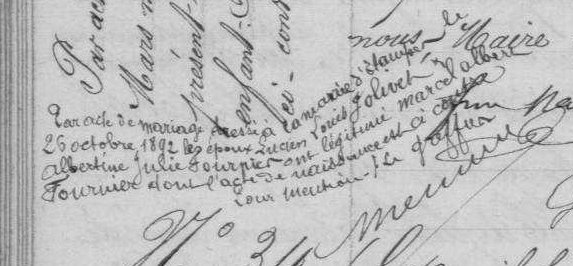 Par ac
Mars
présent
enfant
ci-cont
nous, Maire
Par acte de mariage dressé à la mairie d'Etampes le
26 octobre 1892 les époux Lucien Louis Jolivet &
Albertine Julie Fournier ont légitimé Marcel Albert
Fournier dont l'acte de naissance est ci contre
Pour mention : Le Greffier
N° 34